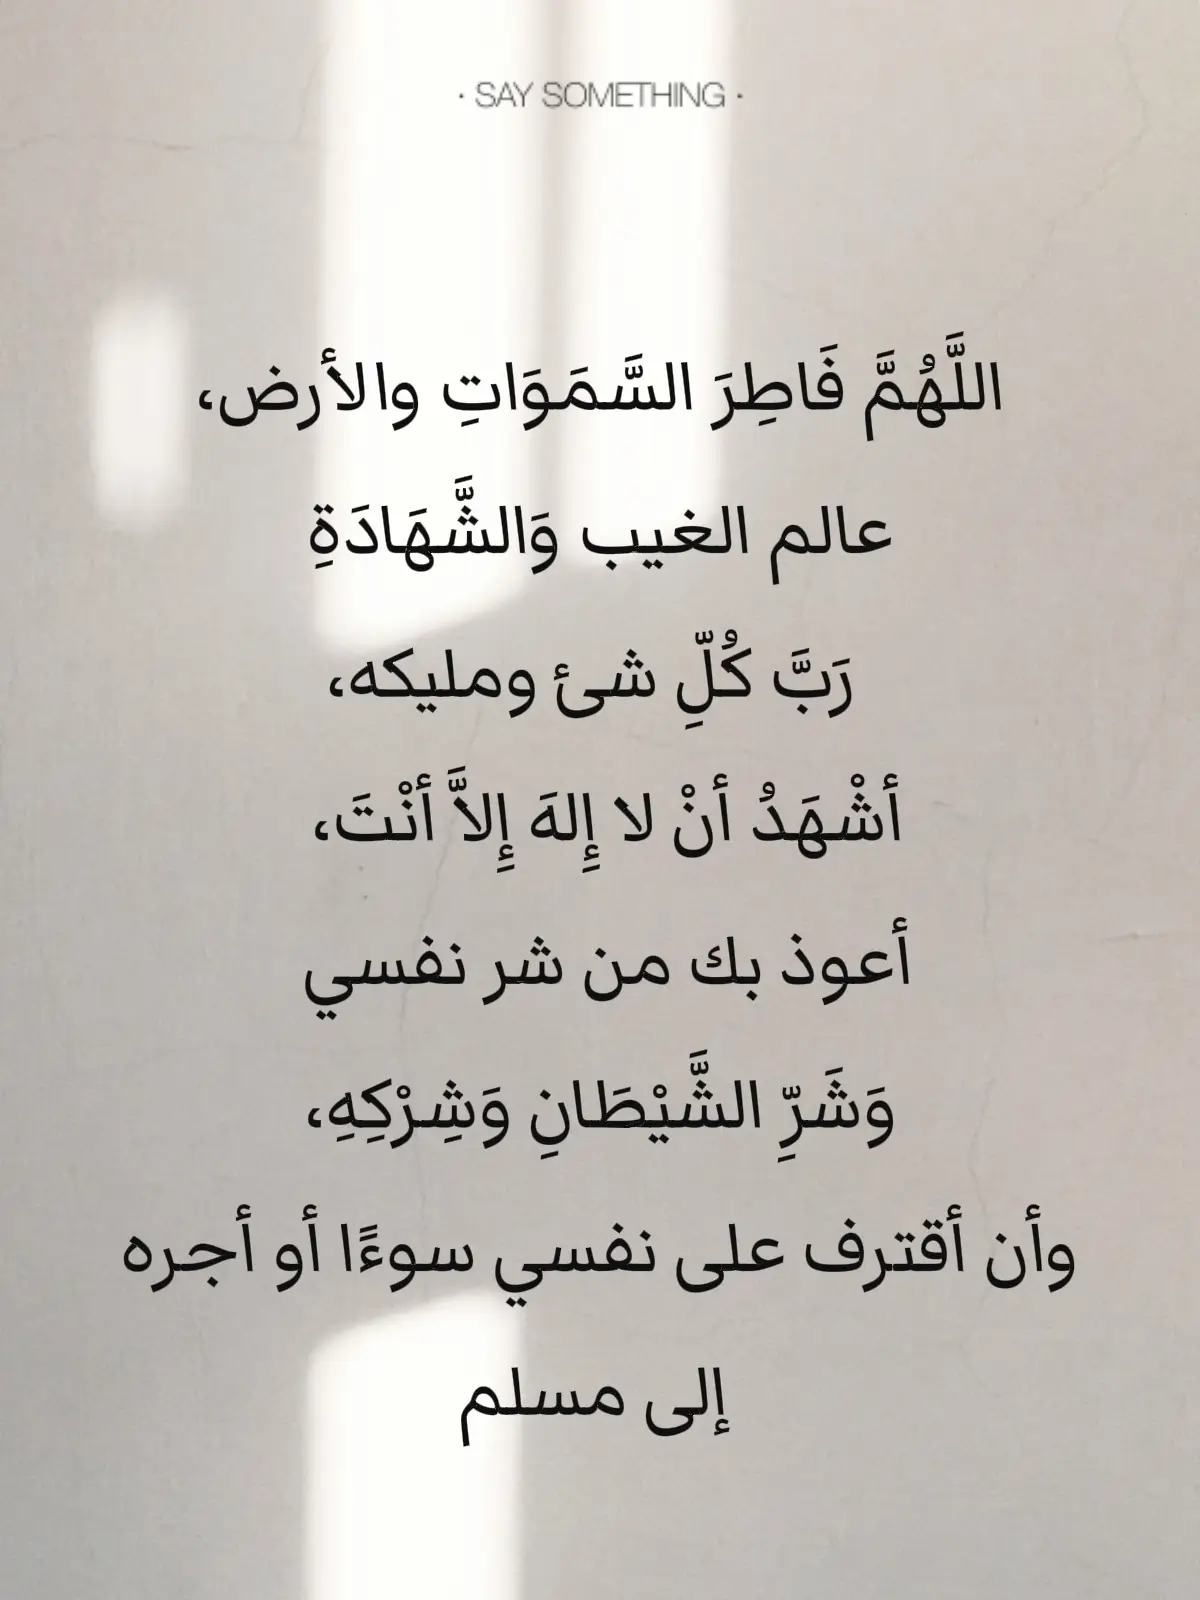 · SAY SOMETHING ·
اللَّهُمَّ فَاطِرَ السَّمَوَاتِ والأرض،
عالم الغيب وَالشَّهَادَةِ
رَبَّ كُلِّ شئ ومليكه،
أشْهَدُ أنْ لا إِلهَ إِلاَّ أنْتَ،
أعوذ بك من شر نفسي
وَشَرِّ الشَّيْطَانِ وَشِرْكِهِ،
وأن أقترف على نفسي سوءًا أو أجره
إلى مسلم